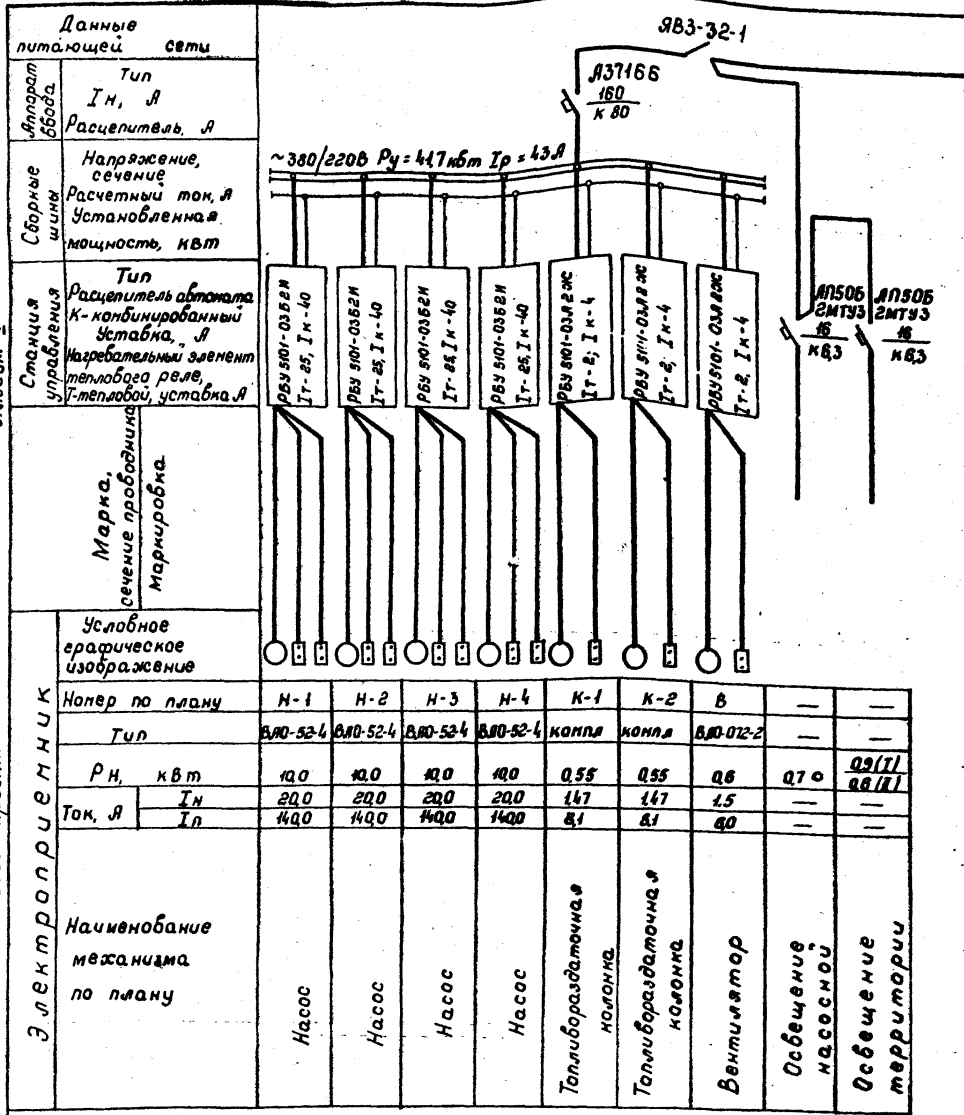 Данные
питающей сети
Аппарат
ввода
Тип
Iн, А
Расцепитель, А
Сборные
шины
Напряжение,
сечение
Расчетный ток, А
Установленная
мощность, квт
Станция
управления
Тип
Расцепитель автомата
К-комбинированный
Уставка, А
Нагревательный элемент
теплового реле,
Т-тепловой, уставка А
Марка,
сечение проводника
маркировка
ЯВЗ-32-1
А3716Б
160
К 80
~380/220В Ру = 41,7 квт Iр = 43А
РБУ 5101-03Б2И
Iт-25, Iк-40
РБУ 5101-03Б2И
Iт-25, Iк-40
РБУ 5101-03Б2И
Iт-25, Iк-40
РБУ 5101-03Б2И
Iт-25, Iк-40
РБУ 5101-03А2Ж
Iт-2; Iк-4
РБУ 5114-03А2Ж
Iт-2; Iк-4
РБУ 5101-03А2Ж
Iт-2, Iк-4
АП50Б
2МТУЗ
16
К6,3
АП50Б
2МТУЗ
16
К6,3
Электроприемник
Условное
графическое
изображение
Номер по плану Н-1 Н-2 Н-3 Н-4 К-1 К-2 В — —
Тип ВАО-52-4 ВАО-52-4 ВАО-52-4 ВАО-52-4 компл компл ВАО-072-2 — —
Рн, квт 10,0 10,0 10,0 10,0 0,55 0,55 0,6 0,7 0,9(I)
0,6(II)
Ток, А
Iн 20,0 20,0 20,0 20,0 1,47 1,47 1.5 — —
Iп 140,0 140,0 140,0 140,0 8,1 8,1 6,0 — —
Наименование
механизма
по плану
Насос
Насос
Насос
Насос
Топливораздаточная
колонка
Топливораздаточная
колонка
Вентилятор
Освещение
насосной
Освещение
территории